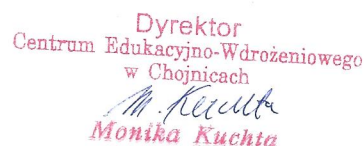 Dyrektor
Centrum Edukacyjno-Wdrożeniowego
w Chojnicach
M. Kuchta
Monika Kuchta